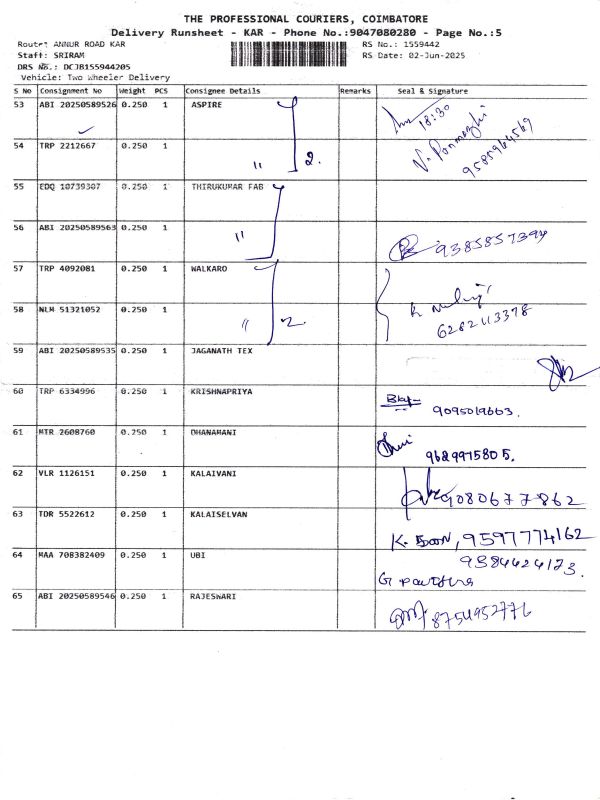 THE PROFESSIONAL COURIERS, COIMBATORE
Delivery Runsheet - KAR - Phone No.:9047080280 - Page No.:5
Route: ANNUR ROAD KAR RS No.: 1559442
Staff: SRIRAM RS Date: 02-Jun-2025
DRS No.: DCJB155944205
Vehicle: Two Wheeler Delivery
S No Consignment No Weight PCS Consignee Details Remarks Seal & Signature
53 ABI 20250589526 0.250 1 ASPIRE 18:30
54 TRP 2212667 0.250 1 " 2. 9585964569
55 EDQ 10739307 0.250 1 THIRUKUMAR FAB
56 ABI 20250589563 0.250 1 " 9385857394
57 TRP 4092081 0.250 1 WALKARO
58 NLM 51321052 0.250 1 " 2 6282113378
59 ABI 20250589535 0.250 1 JAGANATH TEX
60 TRP 6334996 0.250 1 KRISHNAPRIYA 9095019663.
61 MTR 2608760 0.250 1 DHANAMANI 9689975805.
62 VLR 1126151 0.250 1 KALAIVANI 9080677862
63 TDR 5522612 0.250 1 KALAISELVAN 9597774162
64 MAA 708382409 0.250 1 UBI 9384624173.
65 ABI 20250589546 0.250 1 RAJESWARI 8754952776